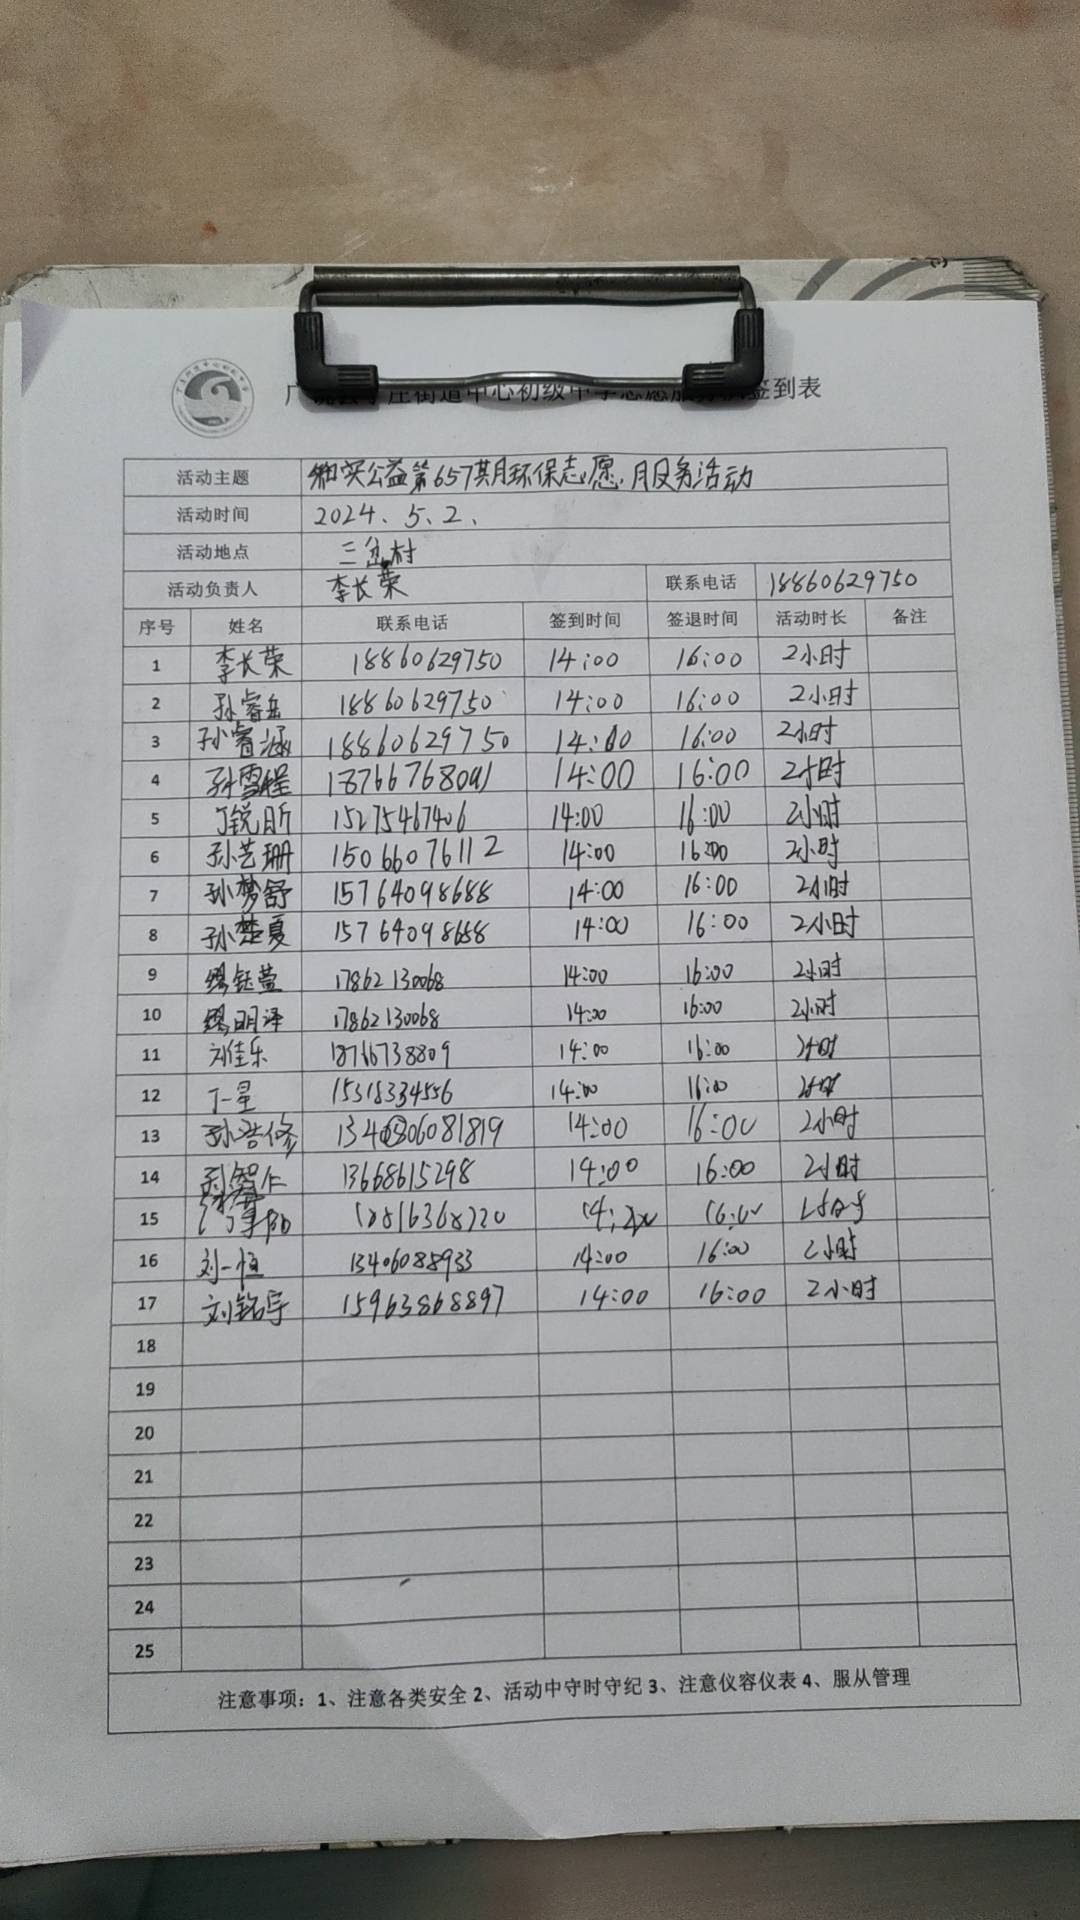 街道中心初级中学志愿服务队签到表
活动主题 和实公益第657期环保志愿服务活动
活动时间 2024.5.2.
活动地点 三岔村
活动负责人 李长荣 联系电话 18860629750
序号 姓名 联系电话 签到时间 签退时间 活动时长 备注
1 李长荣 18860629750 14:00 16:00 2小时
2 孙睿岳 18860629750 14:00 16:00 2小时
3 孙睿涵 18860629750 14:00 16:00 2小时
4 孙雪程 18766768091 14:00 16:00 2小时
5 丁锐昕 15275467406 14:00 16:00 2小时
6 孙艺珊 15066076112 14:00 16:00 2小时
7 孙梦舒 15764098688 14:00 16:00 2小时
8 孙楚夏 15764098688 14:00 16:00 2小时
9 钰萱 17862130068 14:00 16:00 2小时
10 明泽 17862130068 14:00 16:00 2小时
11 刘佳乐 18766738809 14:00 16:00 2小时
12 丁一星 15315334556 14:00 16:00 2小时
13 孙浩修 13406081819 14:00 16:00 2小时
14 13668615298 14:00 16:00 2小时
15
16 刘一恒 13406088933 14:00 16:00 2小时
17 刘铭宇 15963868897 14:00 16:00 2小时
18
19
20
21
22
23
24
25
注意事项：1、注意各类安全 2、活动中守时守纪 3、注意仪容仪表 4、服从管理